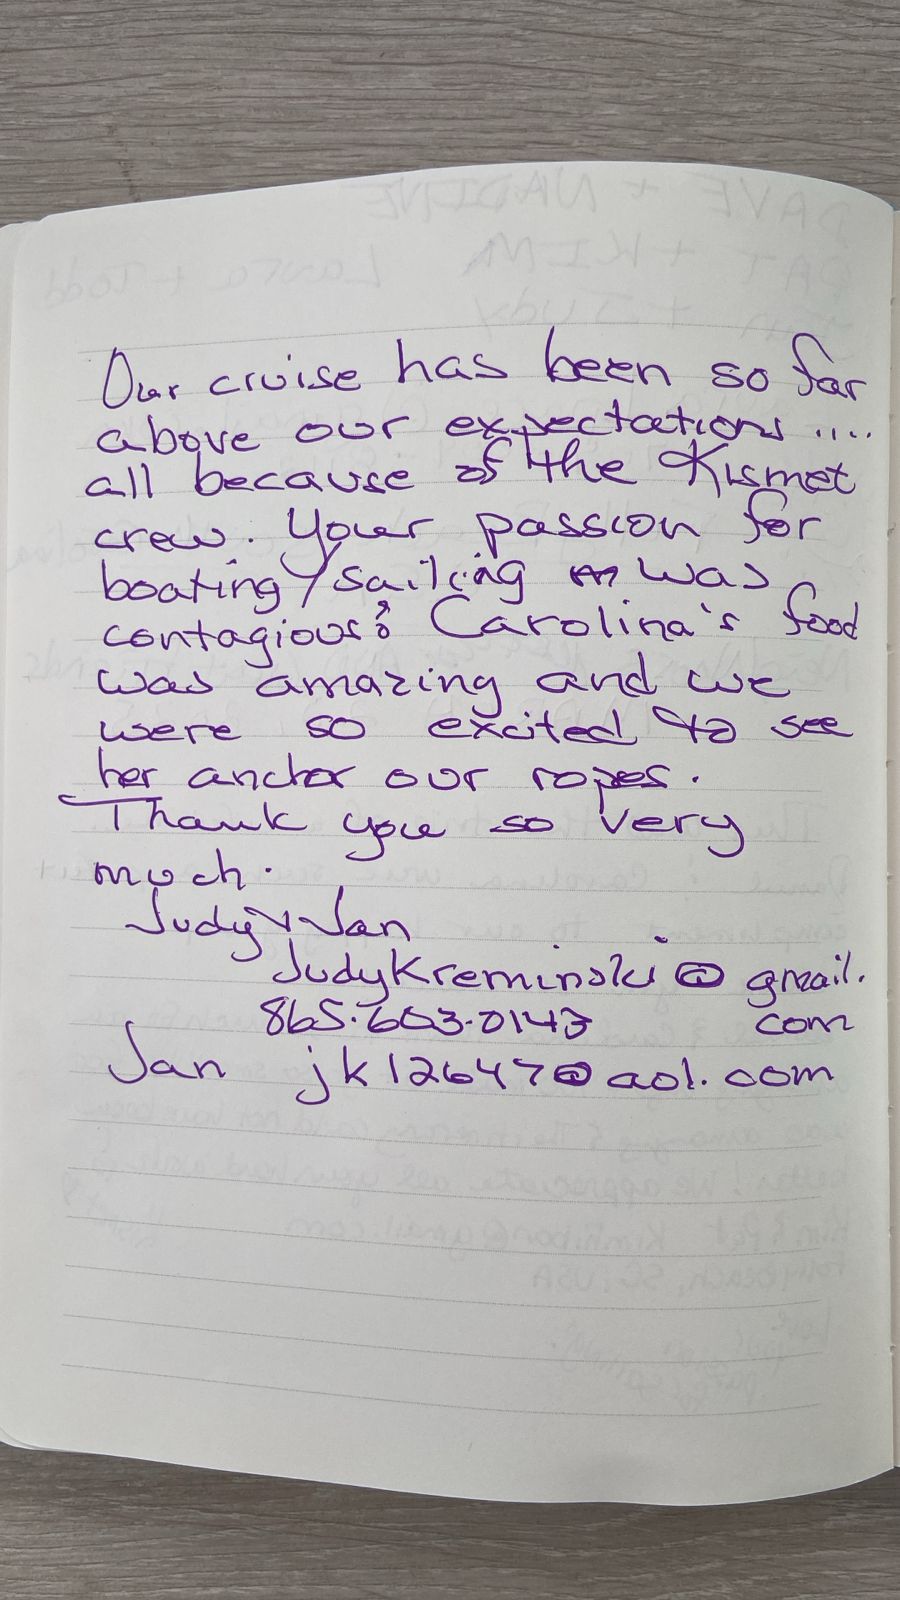 Our cruise has been so far
above our expectations ....
all because of the Kismet
crew. Your passion for
boating/sailing was
contagious! Carolina's food
was amazing and we
were so excited to see
her anchor our ropes.
Thank you so very
much.
Judy & Jan
JudyKreminski@gmail.
865.603.0143 com
Jan jk12647@aol.com